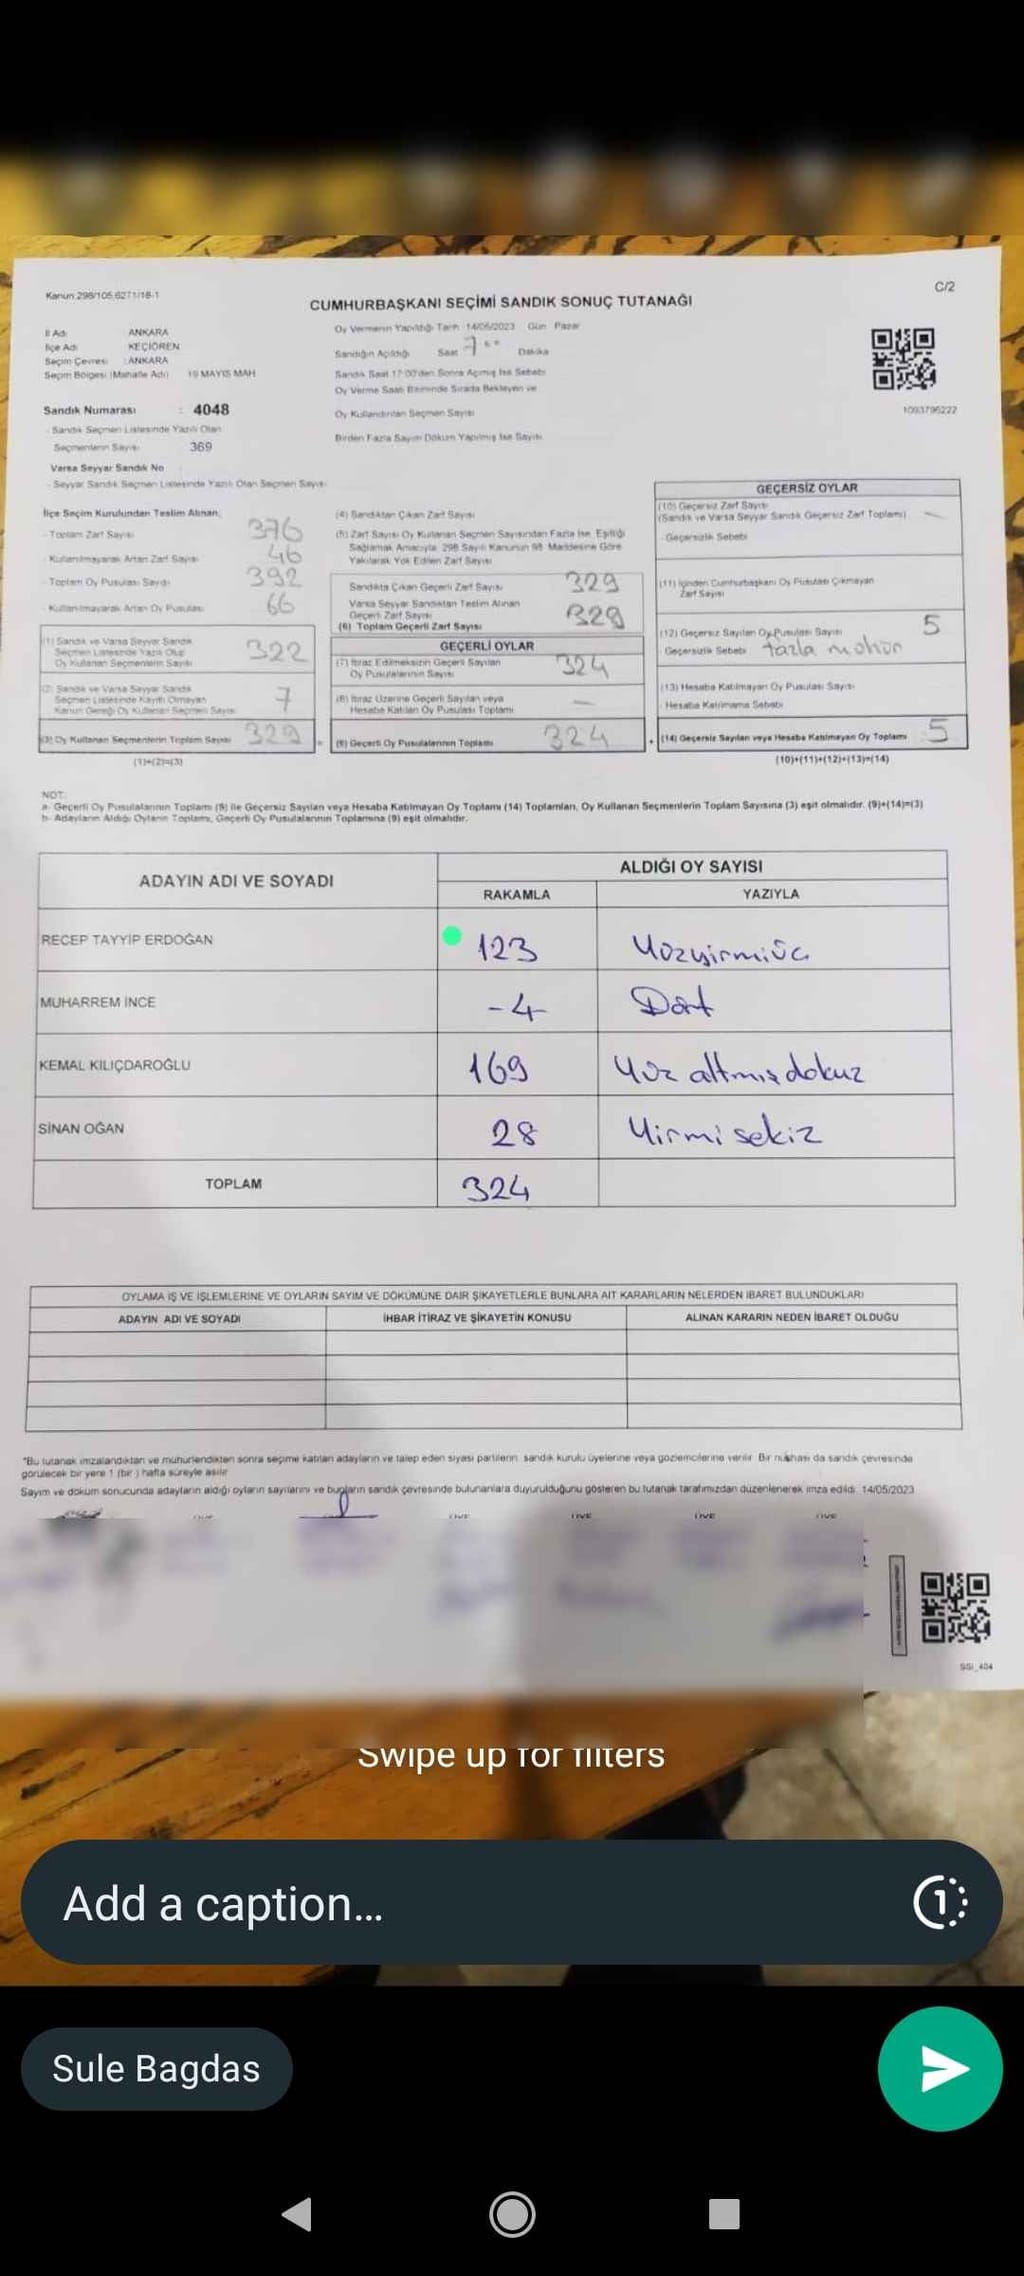 Kanun 298/105,6271/18-1
C/2
CUMHURBAŞKANI SEÇİMİ SANDIK SONUÇ TUTANAĞI
İl Adı : ANKARA
İlçe Adı : KEÇİÖREN
Seçim Çevresi : ANKARA
Seçim Bölgesi (Mahalle Adı) 19 MAYIS MAH
Oy Vermenin Yapıldığı Tarih 14/05/2023 Gün Pazar
Sandığın Açıldığı Saat Dakika
Sandık Saat 17:00'den Sonra Açmış İse Sebebi
Oy Verme Saati Bitiminde Sırada Bekleyen ve
Oy Kullandırılan Seçmen Sayısı
Birden Fazla Sayım Döküm Yapılmış İse Sayısı
1093796222
Sandık Numarası : 4048
- Sandık Seçmen Listesinde Yazılı Olan
Seçmenlerin Sayısı 369
Varsa Seyyar Sandık No
- Seyyar Sandık Seçmen Listesinde Yazılı Olan Seçmen Sayısı
İlçe Seçim Kurulundan Teslim Alınan;
- Toplam Zarf Sayısı 376
- Kullanılmayarak Artan Zarf Sayısı 46
- Toplam Oy Pusulası Sayısı 392
- Kullanılmayarak Artan Oy Pusulası 66
(1) Sandık ve Varsa Seyyar Sandık
Seçmen Listesinde Yazılı Olup
Oy Kullanan Seçmenlerin Sayısı 322
(2) Sandık ve Varsa Seyyar Sandık
Seçmen Listesinde Kayıtlı Olmayan
Kanun Gereği Oy Kullanan Seçmen Sayısı 7
(3) Oy Kullanan Seçmenlerin Toplam Sayısı 329
(1)+(2)=(3)
(4) Sandıktan Çıkan Zarf Sayısı
(5) Zarf Sayısı Oy Kullanan Seçmen Sayısından Fazla İse, Eşitliği
Sağlamak Amacıyla 298 Sayılı Kanunun 98. Maddesine Göre
Yakılarak Yok Edilen Zarf Sayısı
Sandıkta Çıkan Geçerli Zarf Sayısı 329
Varsa Seyyar Sandıktan Teslim Alınan
Geçerli Zarf Sayısı
(6) Toplam Geçerli Zarf Sayısı 329
GEÇERLİ OYLAR
(7) İtiraz Edilmeksizin Geçerli Sayılan
Oy Pusulalarının Sayısı 324
(8) İtiraz Üzerine Geçerli Sayılan veya
Hesaba Katılan Oy Pusulası Toplamı —
(9) Geçerli Oy Pusulalarının Toplamı 324
GEÇERSİZ OYLAR
(10) Geçersiz Zarf Sayısı
(Sandık ve Varsa Seyyar Sandık Geçersiz Zarf Toplamı) —
- Geçersizlik Sebebi
(11) İçinden Cumhurbaşkanı Oy Pusulası Çıkmayan
Zarf Sayısı
(12) Geçersiz Sayılan Oy Pusulası Sayısı 5
- Geçersizlik Sebebi fazla mühür
(13) Hesaba Katılmayan Oy Pusulası Sayısı
- Hesaba Katılmama Sebebi
(14) Geçersiz Sayılan veya Hesaba Katılmayan Oy Toplamı 5
(10)+(11)+(12)+(13)=(14)
NOT:
a- Geçerli Oy Pusulalarının Toplamı (9) ile Geçersiz Sayılan veya Hesaba Katılmayan Oy Toplamı (14) Toplamları, Oy Kullanan Seçmenlerin Toplam Sayısına (3) eşit olmalıdır. (9)+(14)=(3)
b- Adayların Aldığı Oyların Toplamı, Geçerli Oy Pusulalarının Toplamına (9) eşit olmalıdır.
ADAYIN ADI VE SOYADI
ALDIĞI OY SAYISI
RAKAMLA YAZIYLA
RECEP TAYYİP ERDOĞAN 123 Yüzyirmiüç
MUHARREM İNCE -4 Dört
KEMAL KILIÇDAROĞLU 169 Yüz altmış dokuz
SİNAN OĞAN 28 Yirmi sekiz
TOPLAM 324
OYLAMA İŞ VE İŞLEMLERİNE VE OYLARIN SAYIM VE DÖKÜMÜNE DAİR ŞİKAYETLERLE BUNLARA AİT KARARLARIN NELERDEN İBARET BULUNDUKLARI
ADAYIN ADI VE SOYADI İHBAR İTİRAZ VE ŞİKAYETİN KONUSU ALINAN KARARIN NEDEN İBARET OLDUĞU
*Bu tutanak imzalandıktan ve mühürlendikten sonra seçime katılan adayların ve talep eden siyasi partilerin sandık kurulu üyelerine veya gözlemcilerine verilir. Bir nüshası da sandık çevresinde
görülecek bir yere 1 (bir) hafta süreyle asılır
Sayım ve döküm sonucunda adayların aldığı oyların sayılarını ve bunların sandık çevresinde bulunanlara duyurulduğunu gösteren bu tutanak tarafımızdan düzenlenerek imza edildi. 14/05/2023
Swipe up for filters
Add a caption...
1
Sule Bagdas